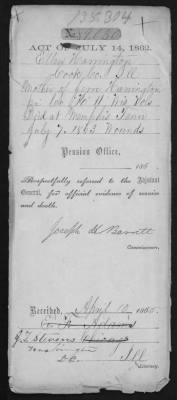 135304
ACT OF JULY 14, 1862.
Ellen Harrington
Cook Co. Ill
Mother of Corn Harrington
Co. H, Ills Vols
Died at Memphis Tenn
July 7. 1863. Wounds
Pension Office,
186
Respectfully referred to the Adjutant
General, for official evidence of service
and death.
Joseph H Barrett
Commissioner.
Received, April 10, 1866.
J. L. Stevens Chicago
D.C. Ill
Attorney.